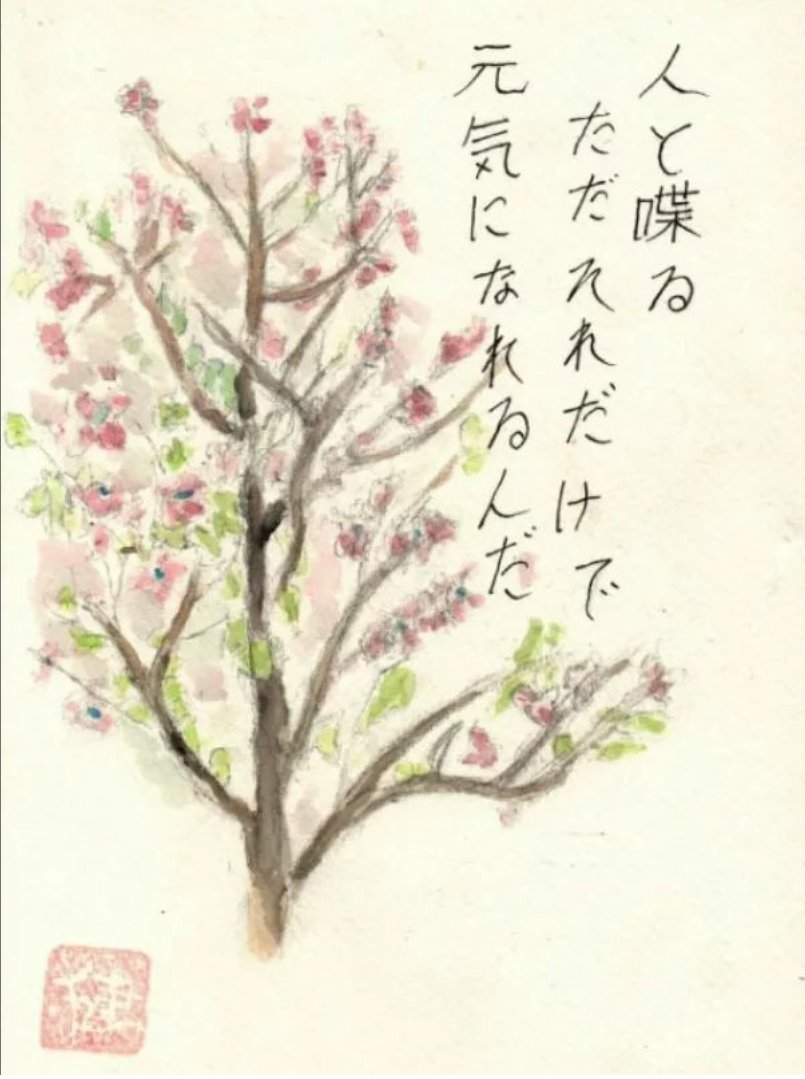 人と喋る
ただそれだけで
元気になれるんだ
健